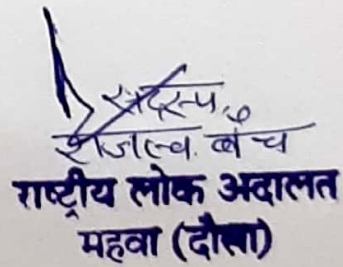 सदस्य,
राजस्व बेंच
राष्ट्रीय लोक अदालत
महवा (दौसा)